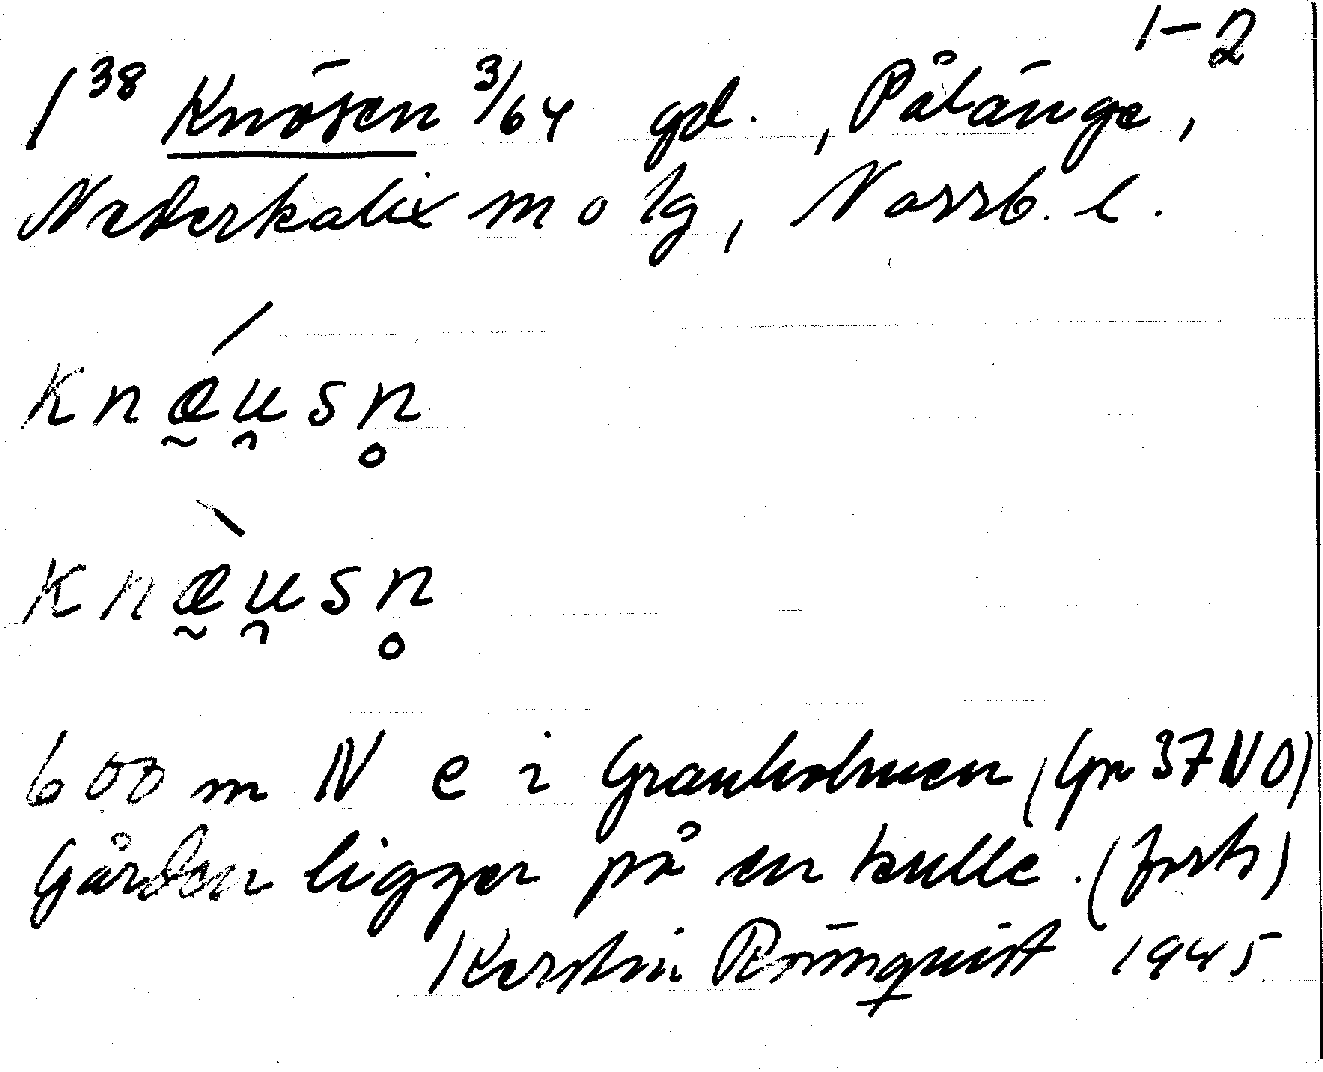 1-2
1³⁸ Knösen 3/64 gd., Pålänge,
Nederkalix m o lg, Norrb. l.
Knǽ̰u̯sn̥
Knæ̰̀u̯sn̥
600 m N e i Granholmen (Gn 37NO)
Gården ligger på en kulle. (forts)
Kerstin Rönnquist 1945